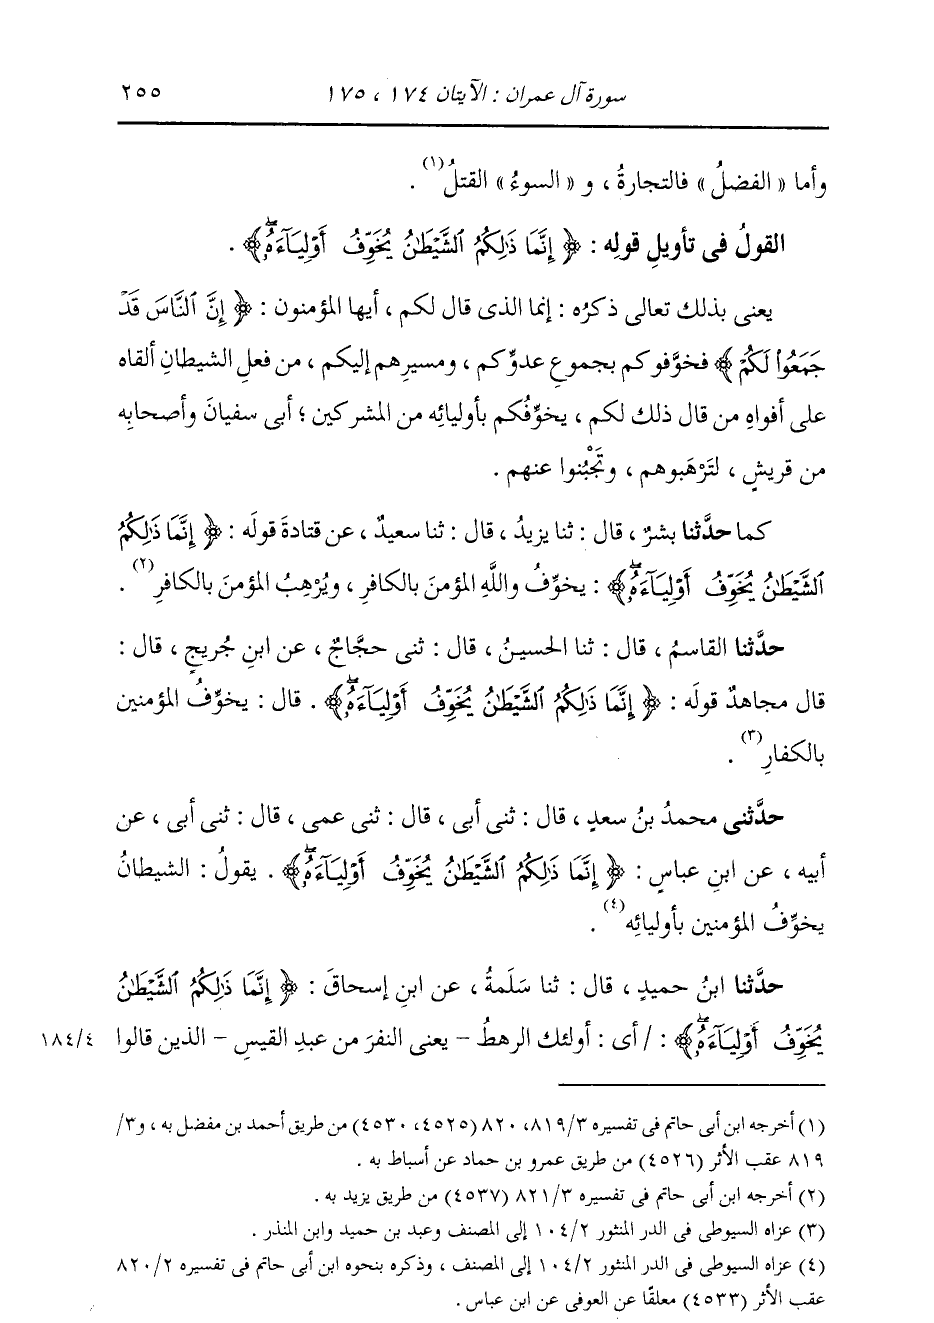 سورة آل عمران : الآيتان ١٧٤ ، ١٧٥ ٢٥٥
وأما « الفضلُ » فالتجارةُ ، و « السوءُ » القتلُ(١) .
القولُ فى تأويلِ قولِه : ﴿ إِنَّمَا ذَٰلِكُمُ ٱلشَّيْطَٰنُ يُخَوِّفُ أَوْلِيَآءَهُۥۖ ﴾ .
يعنى بذلك تعالى ذكرُه : إنما الذى قال لكم ، أيها المؤمنون : ﴿ إِنَّ ٱلنَّاسَ قَدْ
جَمَعُواْ لَكُمْ ﴾ فخوَّفوكم بجموعِ عدوِّكم ، ومسيرِهم إليكم ، من فعلِ الشيطانِ ألقاه
على أفواهِ من قال ذلك لكم ، يخوِّفُكم بأوليائِه من المشركين ؛ أبى سفيانَ وأصحابِه
من قريشٍ ، لتَرْهَبوهم ، وتَجْبُنوا عنهم .
كما حدَّثنا بشرٌ ، قال : ثنا يزيدُ ، قال : ثنا سعيدٌ ، عن قتادةَ قولَه : ﴿ إِنَّمَا ذَٰلِكُمُ
ٱلشَّيْطَٰنُ يُخَوِّفُ أَوْلِيَآءَهُۥۖ ﴾ : يخوِّفُ واللَّهِ المؤمنَ بالكافرِ ، ويُرْهِبُ المؤمنَ بالكافرِ(٢) .
حدَّثنا القاسمُ ، قال : ثنا الحسينُ ، قال : ثنى حجَّاجٌ ، عن ابنِ جُريجٍ ، قال :
قال مجاهدٌ قولَه : ﴿ إِنَّمَا ذَٰلِكُمُ ٱلشَّيْطَٰنُ يُخَوِّفُ أَوْلِيَآءَهُۥۖ ﴾ . قال : يخوِّفُ المؤمنين
بالكفارِ(٣) .
حدَّثنى محمدُ بنُ سعدٍ ، قال : ثنى أبى ، قال : ثنى عمى ، قال : ثنى أبى ، عن
أبيه ، عن ابنِ عباسٍ : ﴿ إِنَّمَا ذَٰلِكُمُ ٱلشَّيْطَٰنُ يُخَوِّفُ أَوْلِيَآءَهُۥۖ ﴾ . يقولُ : الشيطانُ
يخوِّفُ المؤمنين بأوليائِه(٤) .
حدَّثنا ابنُ حميدٍ ، قال : ثنا سَلَمةُ ، عن ابنِ إسحاقَ : ﴿ إِنَّمَا ذَٰلِكُمُ ٱلشَّيْطَٰنُ
يُخَوِّفُ أَوْلِيَآءَهُۥۖ ﴾ : / أى : أولئك الرهطُ – يعنى النفرَ من عبدِ القيسِ – الذين قالوا ١٨٤/٤
(١) أخرجه ابن أبى حاتم فى تفسيره ٨١٩/٣، ٨٢٠ (٤٥٢٥، ٤٥٣٠) من طريق أحمد بن مفضل به ، و٣/
٨١٩ عقب الأثر (٤٥٢٦) من طريق عمرو بن حماد عن أسباط به .
(٢) أخرجه ابن أبى حاتم فى تفسيره ٨٢١/٣ (٤٥٣٧) من طريق يزيد به .
(٣) عزاه السيوطى فى الدر المنثور ١٠٤/٢ إلى المصنف وعبد بن حميد وابن المنذر .
(٤) عزاه السيوطى فى الدر المنثور ١٠٤/٢ إلى المصنف ، وذكره بنحوه ابن أبى حاتم فى تفسيره ٨٢٠/٢
عقب الأثر (٤٥٣٣) معلقًا عن العوفى عن ابن عباس .